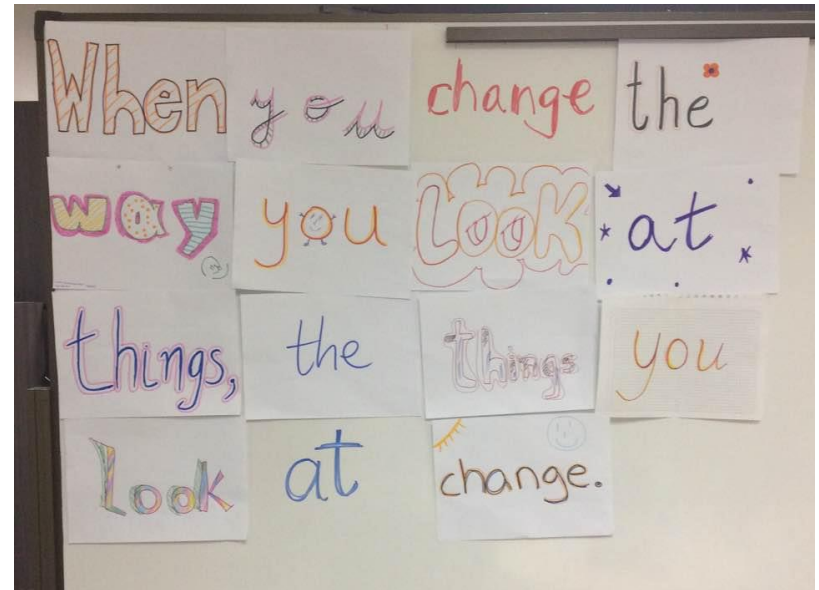 When you change the
way you Look at
things, the things you
Look at change.